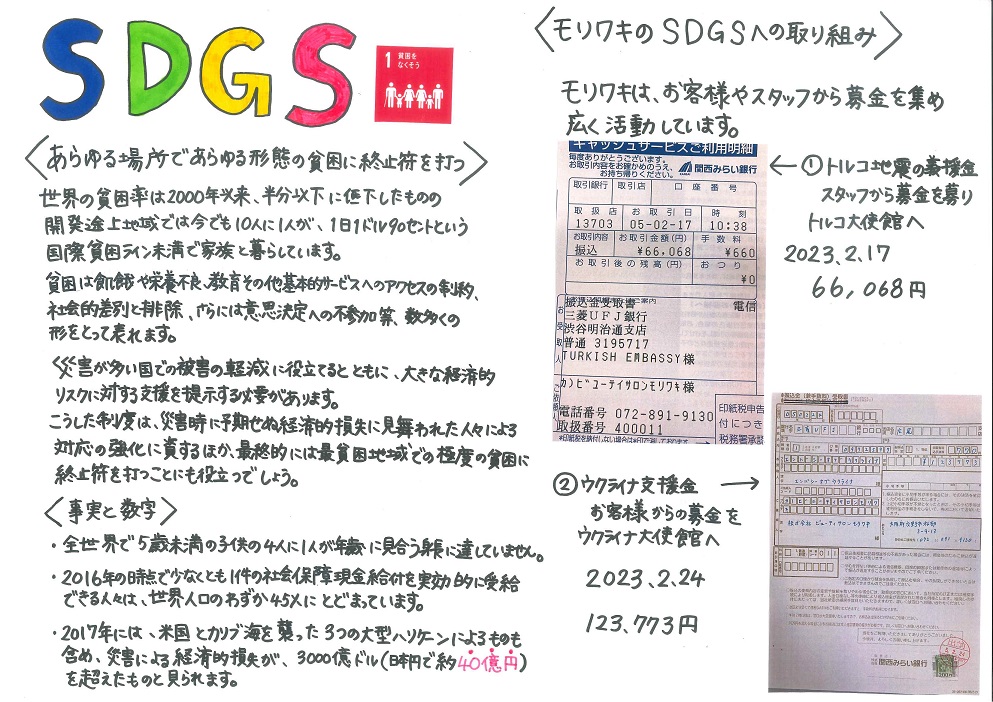 SDGS
1 貧困を
なくそう
〈あらゆる場所であらゆる形態の貧困に終止符を打つ〉
世界の貧困率は2000年以来、半分以下に低下したものの
開発途上地域では今でも10人に1人が、1日1ドル90セントという
国際貧困ライン未満で家族と暮らしています。
貧困は飢餓や栄養不良、教育その他基本的サービスへのアクセスの制約、
社会的差別と排除、さらには意思決定への不参加等、数多くの
形をとって表れます。
災害が多い国での被害の軽減に役立てるとともに、大きな経済的
リスクに対する支援を提示する必要があります。
こうした制度は、災害時に予期せぬ経済的損失に見舞われた人々による
対応の強化に資するほか、最終的には最貧困地域での極度の貧困に
終止符を打つことにも役立つでしょう。
〈事実と数字〉
・全世界で5歳未満の子供の4人に1人が年齢に見合う身長に達していません。
・2016年の時点で少なくとも1件の社会保障現金給付を実効的に受給
できる人々は、世界人口のわずか45%にとどまっています。
・2017年には、米国とカリブ海を襲った3つの大型ハリケーンによるものも
含め、災害による経済的損失が、3000億ドル(日本円で約40億円)
を超えたものと見られます。
〈モリワキのSDGSへの取り組み〉
モリワキは、お客様やスタッフから募金を集め
広く活動しています。
キャッシュサービスご利用明細
毎度ありがとうございます。
お取引内容をお確かめのうえ、
お持ち帰りください。
関西みらい銀行
取引銀行 取引店 口座番号
取扱店 お取引日 時刻
13703 05-02-17 10:38
お取引内容 お取引金額(円) 手数料
振込 ¥66,068 ¥660
お取引後の残高(円) おつり
¥0
振込金受取書 電信
三菱UFJ銀行
渋谷明治通支店
普通 3195717
TURKISH EMBASSY様
カ)ビユーテイサロンモリワキ様
電話番号 072-891-9130
取扱番号 400011
印紙税申告
付につき
税務署承認
←①トルコ地震の義援金
スタッフから募金を募り
トルコ大使館へ
2023.2.17
66,068円
②ウクライナ支援金 →
お客様からの募金を
ウクライナ大使館へ
2023.2.24
123.773円
関西みらい銀行